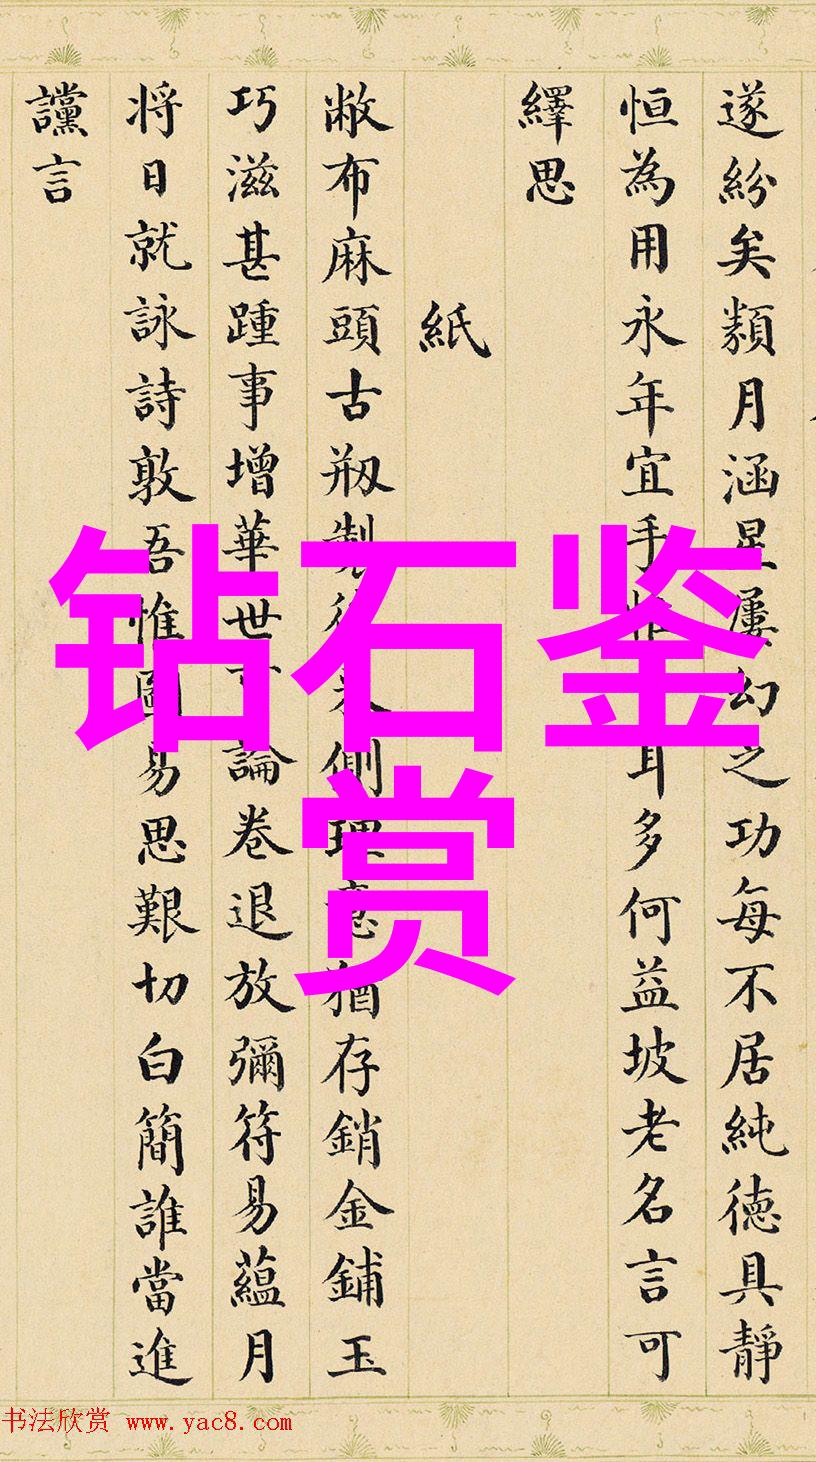 遂紛矣類月涵星屢幻之功每不居純德具靜
恒為用永年宜手惟耳多何益坡老名言可
繹思
紙
敝布麻頭古剏製後來側理應猶存銷金鋪玉
巧滋甚踵事增華世下論卷退放彌符易蘊月
将日就詠詩敦吾惟圖易思艱切白簡誰當進
讜言
钻石鉴
赏
书法欣赏 www.yac8.com